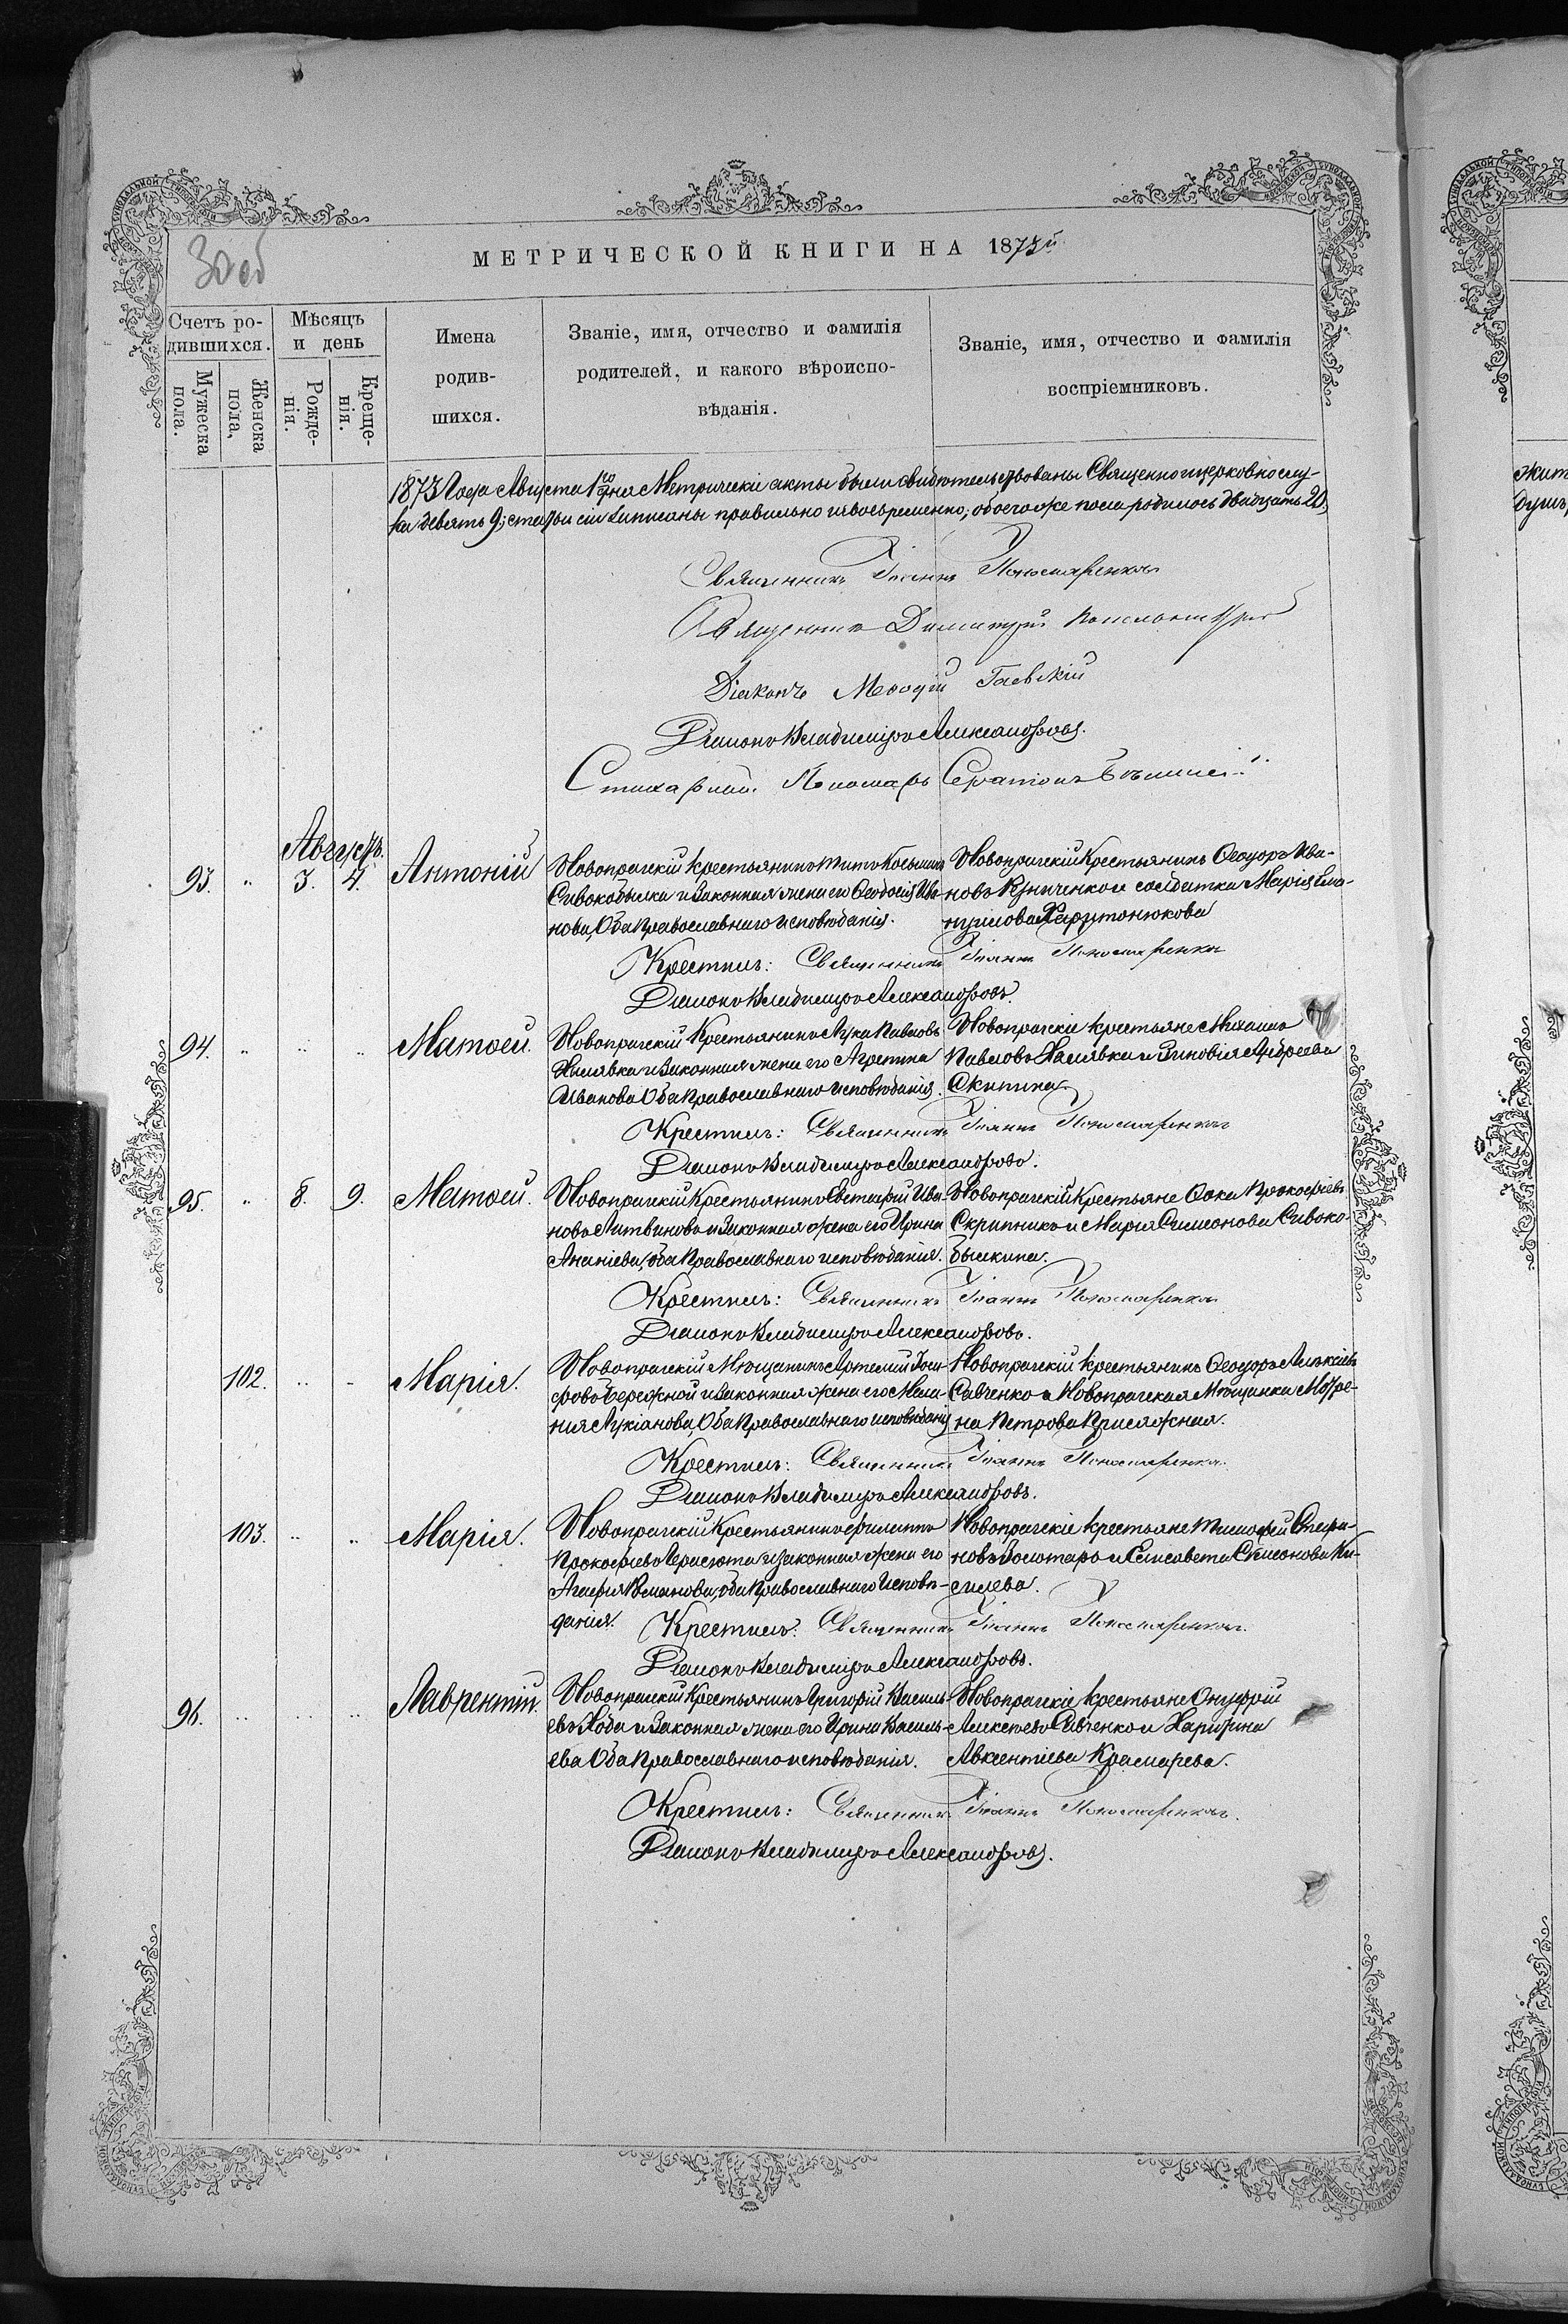 30 об
МЕТРИЧЕСКОЙ КНИГИ НА 1873й
Счетъ ро-
дившихся.
Мужеска пола.
Женска пола,
Мѣсяцъ
и день
Рожде-
нія.
Креще-
нія.
Имена
родив-
шихся.
Званіе, имя, отчество и фамилія
родителей, и какого вѣроиспо-
вѣданія.
Званіе, имя, отчество и фамилія
воспріемниковъ.
1873 Года Августа 1го дня Метрическіе акты были свидѣтельствованы Священноцерковнослу-
девять 9; статьи сіи записаны правильно и своевременно; обоего же пола родилось двадцать 20.
Священникъ Іоаннъ Пономаренковъ
Священникъ Димитрій
Діаконъ Меѳодій Гаевскій
Діаконъ Владиміръ Александровъ.
Стихарный Пономарь Серапіонъ
Августъ.
93. " 3. 4. Антоній
Новопрагскій крестьянинъ Титъ Косьминъ
Сивокобылка и Законная жена его Ѳеодосія Ива-
нова, Оба Православнаго исповѣданія.
Новопрагскій Крестьянинъ Ѳеодоръ Ива-
новъ Кузниченко и солдатка Марія
Харитонюкова
Крестилъ: Священникъ Іоаннъ Пономаренковъ
Діаконъ Владиміръ Александровъ.
94. " " " Матѳей.
Новопрагскій Крестьянинъ Лука Павловъ
Халявка и Законная жена его Агрепина
Иванова Оба Православнаго исповѣданія.
Новопрагскіе крестьяне Михаилъ
Павловъ Халявка и Зиновія Андреева
Скипина
Крестилъ: Священникъ Іоаннъ Пономаренковъ
Діаконъ Владиміръ Александровъ.
95. " 8. 9. Матѳей.
Новопрагскій Крестьянинъ Евстафій Ива-
новъ Литвиновъ и Законная жена его Ирина
Ананіева, оба Православнаго исповѣданія.
Новопрагскій Крестьяне Ѳока Прокофіевъ
Скрипникъ и Марія Симеонова Сивоко-
былкина.
Крестилъ: Священникъ Іоаннъ Пономаренковъ
Діаконъ Владиміръ Александровъ.
102. " " Марія.
Новопрагскій Мѣщанинъ Артемій Іоси-
фовъ Бережной и Законная жена его Мела-
нія Лукіанова, Оба Православнаго исповѣданія
Новопрагскій крестьянинъ Ѳеодоръ Алексіевъ
Савченко и Новопрагская Мѣщанка Мотре-
на Петрова Присяжная.
Крестилъ: Священникъ Іоаннъ Пономаренковъ
Діаконъ Владиміръ Александровъ.
103. " " Марія.
Новопрагскій Крестьянинъ Филиппъ
Прокофьевъ Герасюта и законная жена его
Агафія Романова, оба Православнаго Исповѣ-
данія.
Новопрагскіе крестьяне Тимофей Стефа-
новъ Золотарь и Елисавета Симеонова Ки-
селева.
Крестилъ: Священникъ Іоаннъ Пономаренковъ.
Діаконъ Владиміръ Александровъ.
96. " " " Лаврентій.
Новопрагскій Крестьянинъ Григорій Василь-
евъ Коба и Законная жена его Ирина Василь-
ева Оба Православнаго исповѣданія.
Новопрагскіе крестьяне Онуфрій
Алексѣевъ Савченко и Харитина
Авксентіева Крамарева.
Крестилъ: Священникъ Іоаннъ Пономаренковъ.
Діаконъ Владиміръ Александровъ.